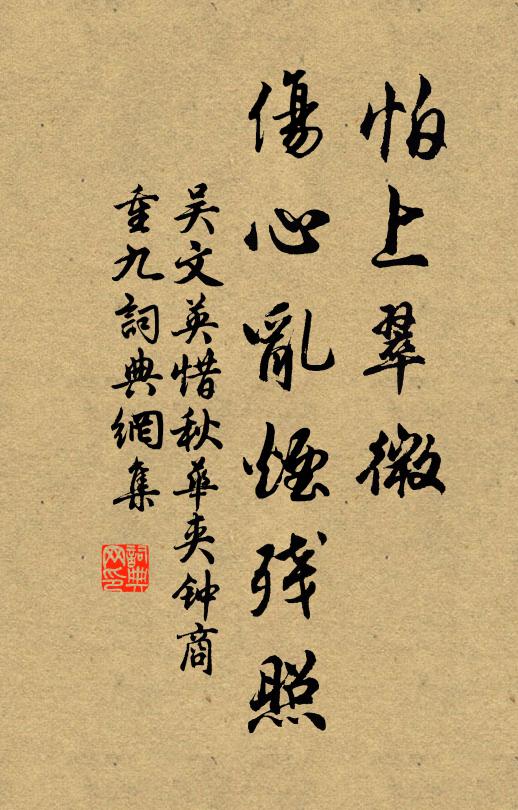 怕上翠微
傷心亂煙残照
吴文英惜秋華夹钟商
重九詞典網集
詞典网印